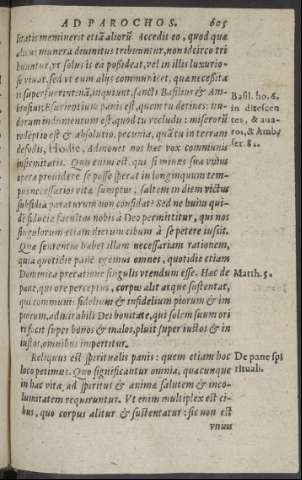 AD PAROCHOS. 605
sitatis meminerit etiã aliorũ. Accedit eo, quod quæ
diuini munera deuinitus tribuuntur, non idcirco tri
buuntur, vt solus is ea possideat, vel in illis luxurio-
se viuat: sed vt eum alijs communicet, quæ necessita
ti superfuerint: nã, inquiunt, sancti Basilius & Am-
brosius: Esurientium panis est, quem tu detines: nu-
dorum indumentum est, quod tu recludis: miserorũ
redeptio est & absolutio, pecunia, quã tu in terram
defodis, Hodie, Admonet nos hæc vox communis
infirmitatis. Quis enim est, qui si minus sua vnius
opera prouidere se posse sperat in longinquum tem-
pus necessarios vitæ sumptus, saltem in diem victus
subsidia paraturum non confidat? Sed ne huius qui-
dẽ fiduciæ facultas nobis à Deo permittitur, qui nos
singulorum etiam dierum cibum à se petere iussit.
Quæ sententia habet illam necessariam rationem,
quia quotidie pane egemus omnes, quotidie etiam
Dominica precatione singulis vtendum esse. Hæc de
pane, qui ore perceptus, corpus alit atque sustentat,
qui communis fidelium & infidelium piorum & im
piorum, admirabili Dei bonitate, qui solem suum ori
ri facit super bonos & malos, pluit super iustos & in
iustos, omnibus impertitur.
Reliquus est spiritualis panis: quem etiam hoc
loco petimus. Quo significantur omnia, quæcunque
in hac vita, ad spiritus & animæ salutem & inco-
lumitatem requiruntur. Vt enim multiplex est ci-
bus, quo corpus alitur & sustentatur: sic non est
vnum
Basil. ho. 6.
in ditescen
tes, & aua-
ros, & Ambr.
ser. 81.
Matth. 5.
De pane spi
rituali.